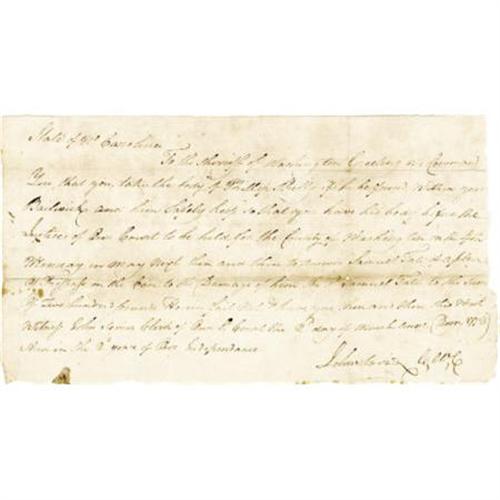 State of No Carolina
To the Sherriff of Washington Greeting we Command
You that you take the body of Shelby if to be found within your
Bailiwick and him Safely keep so that you have his body before the
Justices of our Court to be held for the County of Washington on the first
Monday in May next then and there to answer Samuel Tate of a plea
of Trespass on the Case to the Damage of him the Sd Samuel Tate to the Sum
of two hundred pounds Herein fail not & have you then and there this Writ
Witness John Clerk of Our Sd Court the day of March Anno Dom
And in the year of Our Independance
John